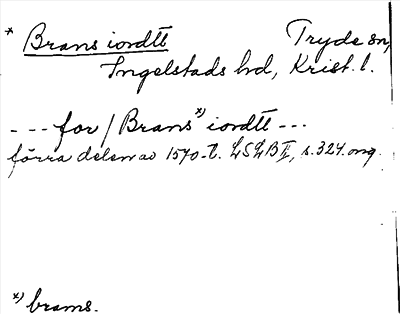 * Brans iordtt Tryde sn,
Ingelstads hd, Krist. l.
--- for / Brans x) iordtt ---
förra delen av 1570-t. LSLB II, s. 324. omg.
x) brams.